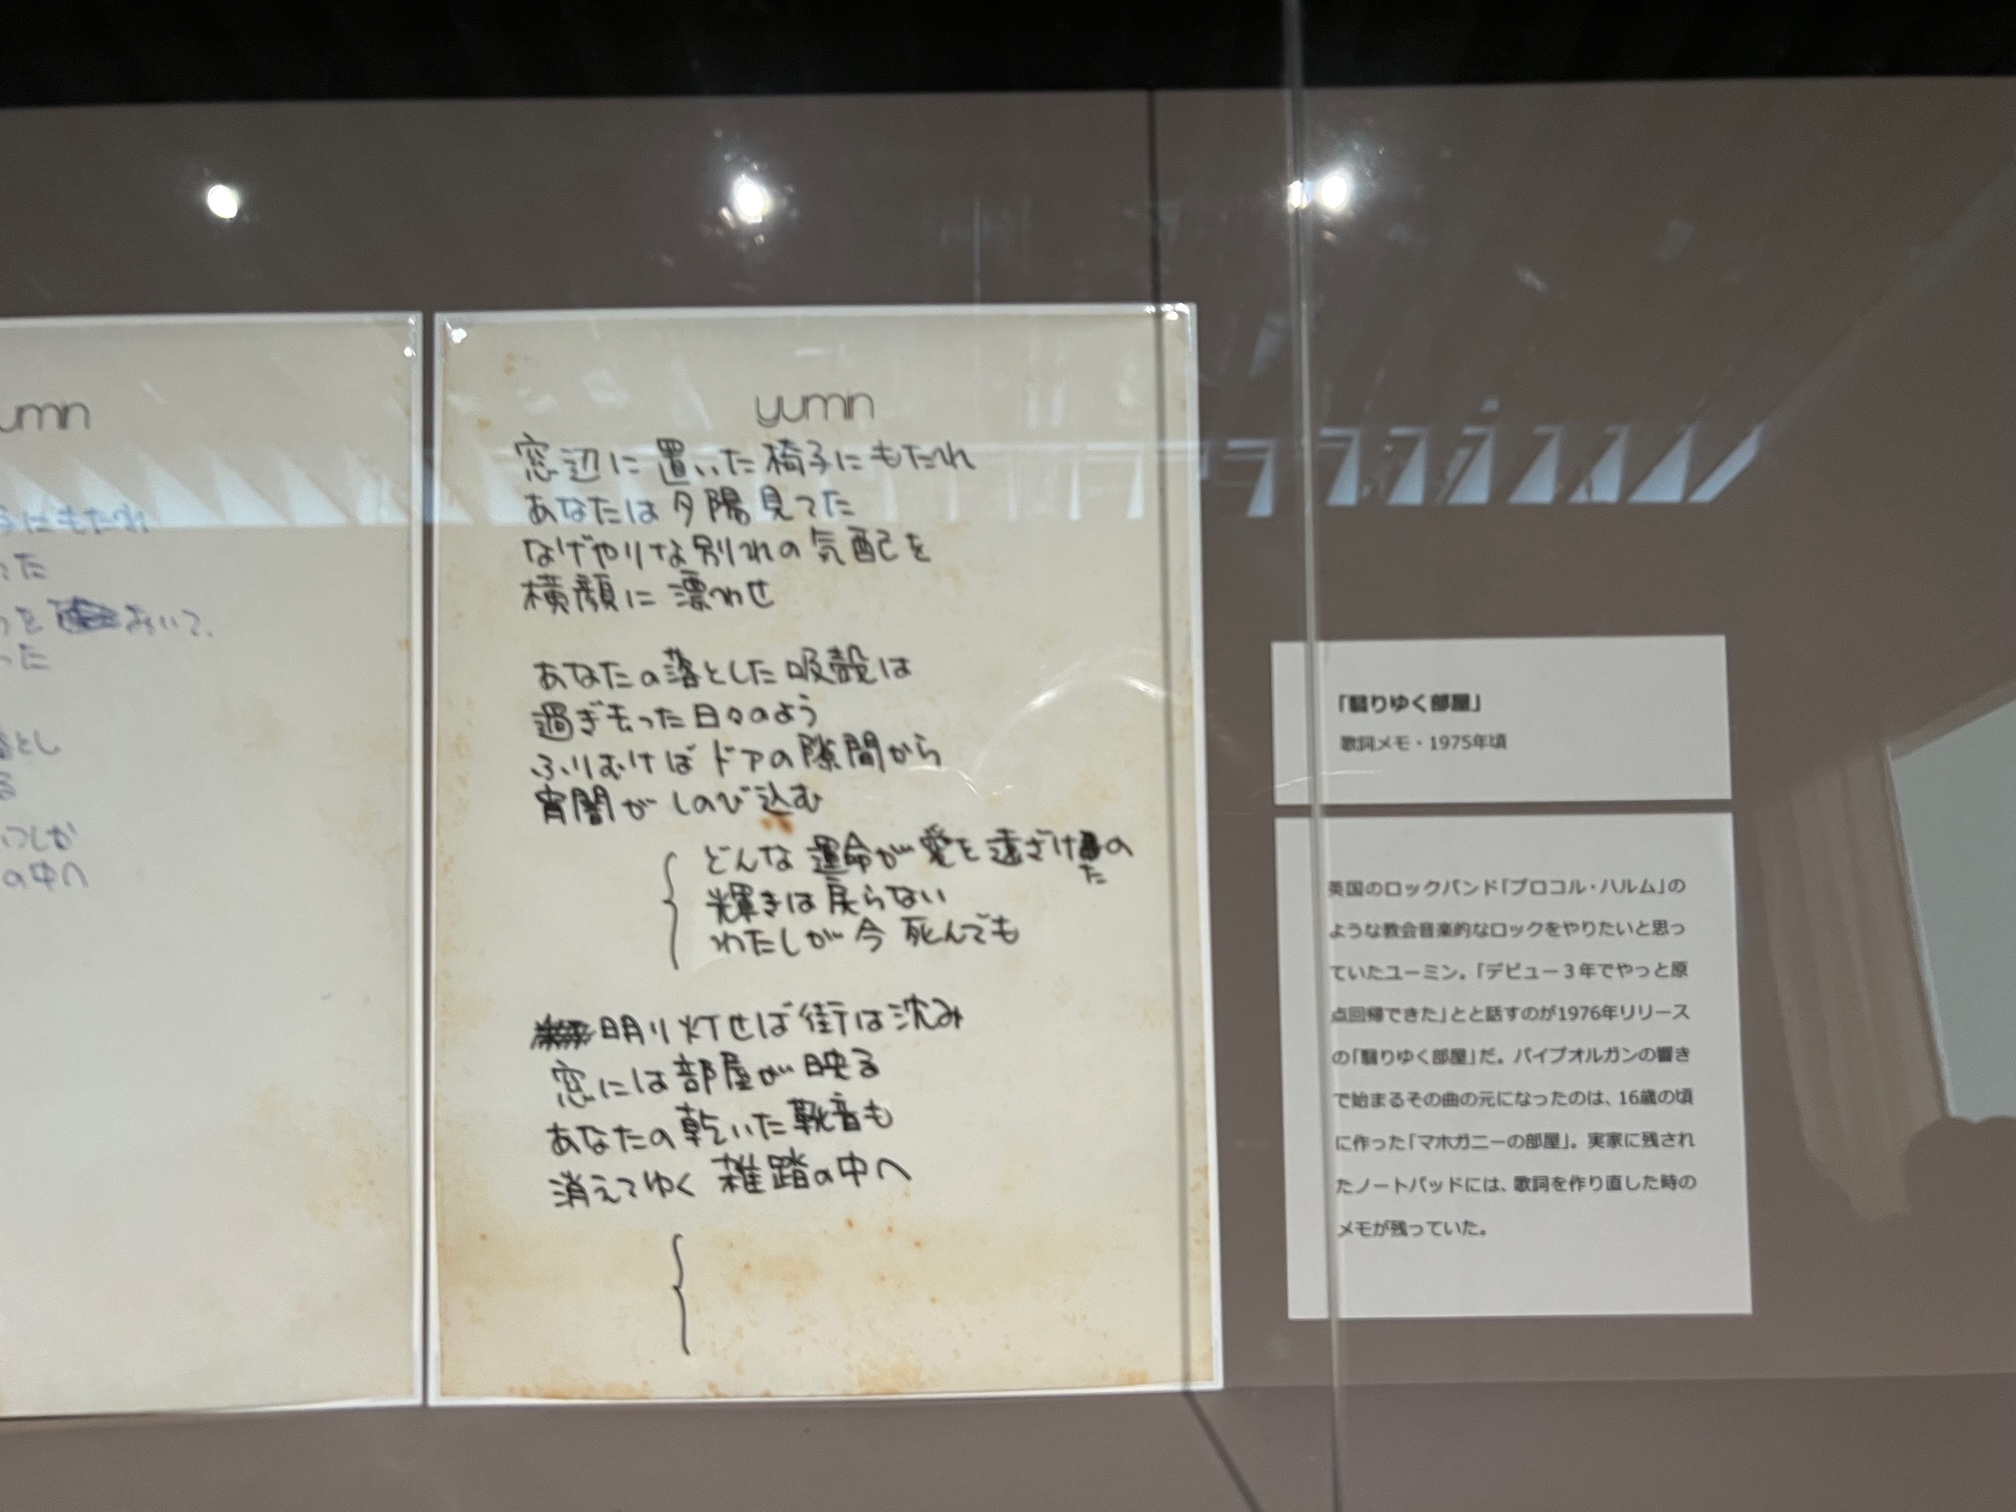 umin
子にもたれ
った
おいて、
った
落とし
る
いつしか
の中へ
yumin
窓辺に置いた椅子にもたれ
あなたは夕陽見てた
なげやりな別れの気配を
横顔に漂わせ
あなたの落とした吸殻は
過ぎ去った日々のよう
ふりむけばドアの隙間から
宵闇がしのび込む
どんな運命が愛を遠ざけたの
輝きは戻らない
わたしが今死んでも
明り灯せば街は沈み
窓には部屋が映る
あなたの乾いた靴音も
消えてゆく雑踏の中へ
「翳りゆく部屋」
歌詞メモ・1975年頃
英国のロックバンド「プロコル・ハルム」の
ような教会音楽的なロックをやりたいと思っ
ていたユーミン。「デビュー３年でやっと原
点回帰できた」とと話すのが1976年リリース
の「翳りゆく部屋」だ。パイプオルガンの響き
で始まるその曲の元になったのは、16歳の頃
に作った「マホガニーの部屋」。実家に残され
たノートパッドには、歌詞を作り直した時の
メモが残っていた。